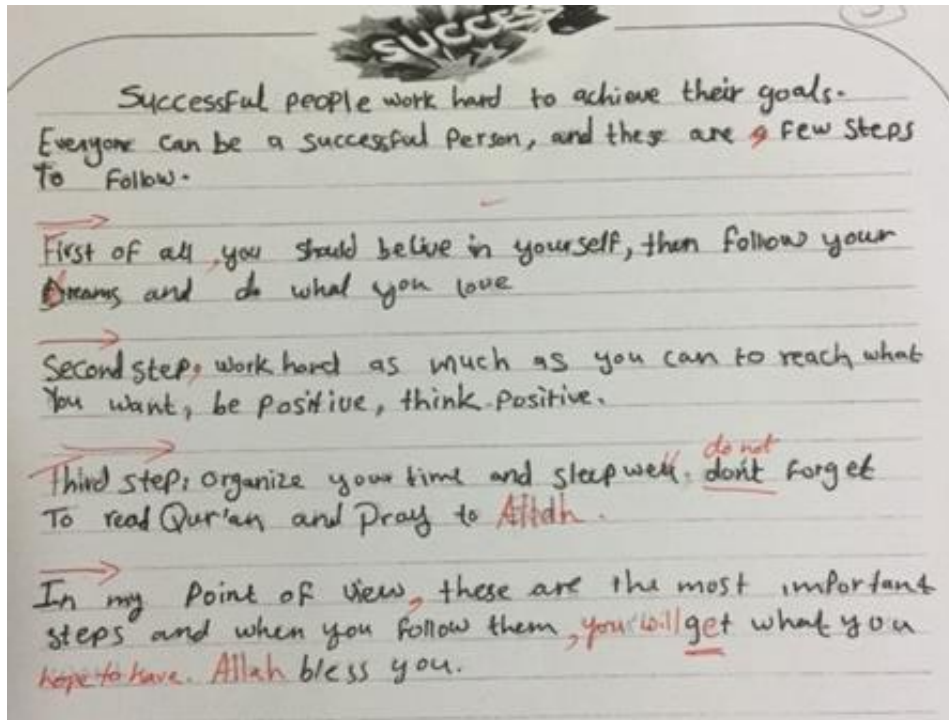 SUCCESS
Successful people work hard to achieve their goals.
Everyone can be a successful Person, and these are a Few Steps
To Follow.
First of all, you should belive in yourself, then follow your
Dreams and do what you love
Second step, work hard as much as you can to reach what
You want, be Positive, think Positive.
do not
Third step, organize your time and sleep well. dont Forget
To read Qur'an and Pray to Allah.
In my Point of view, these are the most important
steps and when you Follow them, you will get what you
hope to have. Allah bless you.